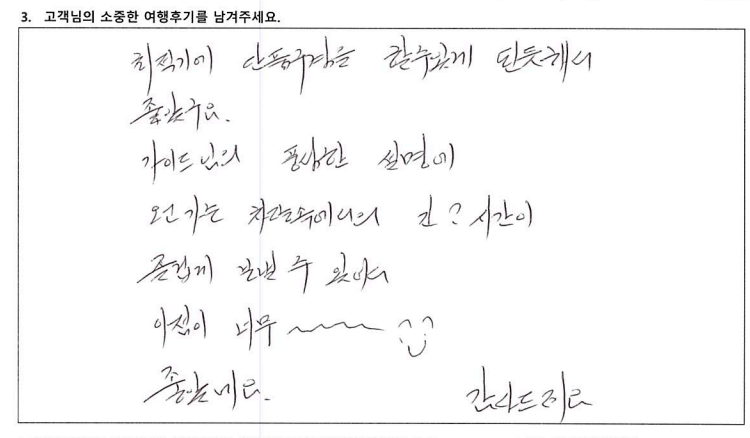 3. 고객님의 소중한 여행후기를 남겨주세요.
최적기에 단풍구경을 할수있게 된듯해서
좋았구요.
가이드님의 풍부한 설명에
오고 가는 차안속에서의 긴? 시간이
즐겁게 보낼 수 있어서
이점이 너무 ~~~
좋았네요. 감사드려요